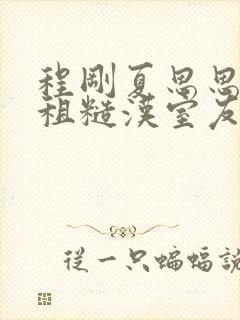 程剛夏思思
粗糙漢室友
從一只蝙蝠說